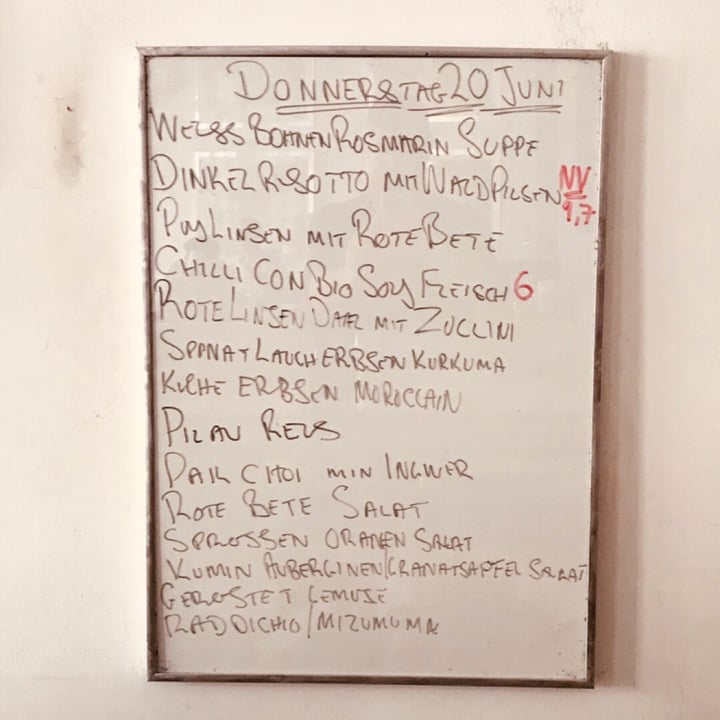 DONNERSTAG 20 JUNI
WEISS BOHNEN ROSMARIN SUPPE
DINKEL RISOTTO MIT WALDPILSEN NV
1,7
PUY LINSEN MIT ROTE BETE
CHILLI CON BIO SOY FLEISCH 6
ROTE LINSEN DAAL MIT ZUCCINI
SPANAT LAUCH ERBSEN KURKUMA
KICHE ERBSEN MOROCCAIN
PILAU REIS
PAK CHOI MIN INGWER
ROTE BETE SALAT
SPROSSEN ORANEN SALAT
KUMIN AUBERGINEN/GRANATSAPFEL SALAT
GEROSTET GEMUSE
RADDICHIO/MIZUMUMA